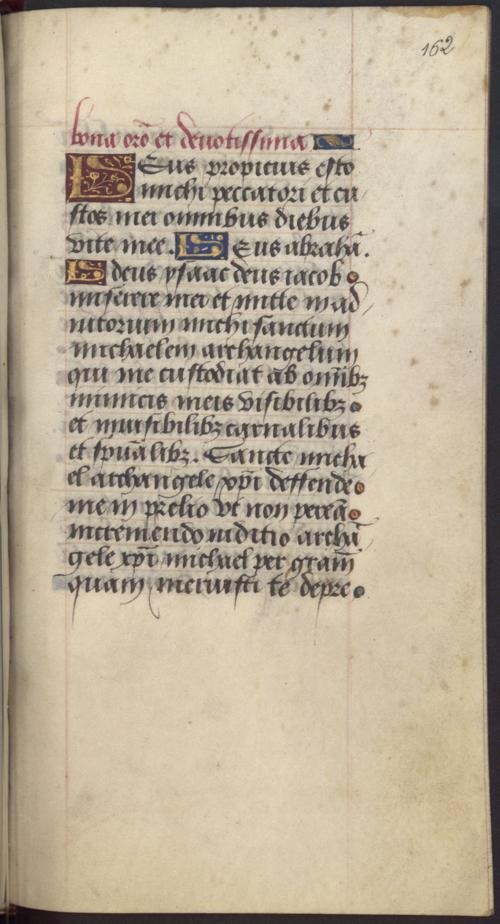 162
bona orõ et deuotissima
Deus propicius esto
michi peccatori et cu
stos mei omnibus diebus
vite mee. Deus abrahã.
deus ysaac deus iacob
miserere mei et mitte in ad
iutorium michi sanctum
michaelem archangelum
qui me custodiat ab oĩnibꝫ
inimicis meis visibilibꝫ
et inuisibilibꝫ carnalibus
et spũalibꝫ. Sancte micha
el archangele xp̃i deffende
me in prelio vt non pereã
in tremendo iuditio archã
gele xp̃i michael per grãm
quam meruisti te depre